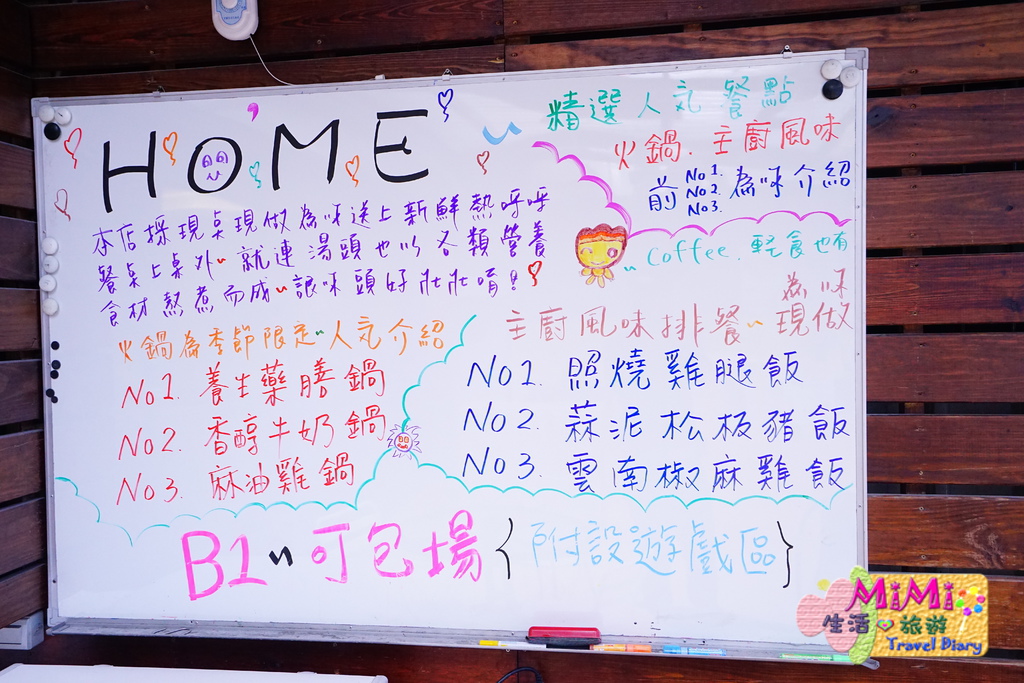 HOME
本店採現桌現做為咪送上新鮮熱呼呼
餐桌上桌外~就連湯頭也以各類營養
食材熬煮而成~誤咪頭好壯壯唷!
精選人气餐點
火鍋.主廚風味
前 No1. No2. No3. 為咪介紹
~Coffee.輕食也有
火鍋為季節限定~人气介紹
No1. 養生藥膳鍋
No2. 香醇牛奶鍋
No3. 麻油雞鍋
主廚風味排餐~為咪現做
No1. 照燒雞腿飯
No2. 蒜泥松板豬飯
No3. 雲南椒麻雞飯
B1~可包場{附設遊戲區}
MiMi
生活旅遊
Travel Diary